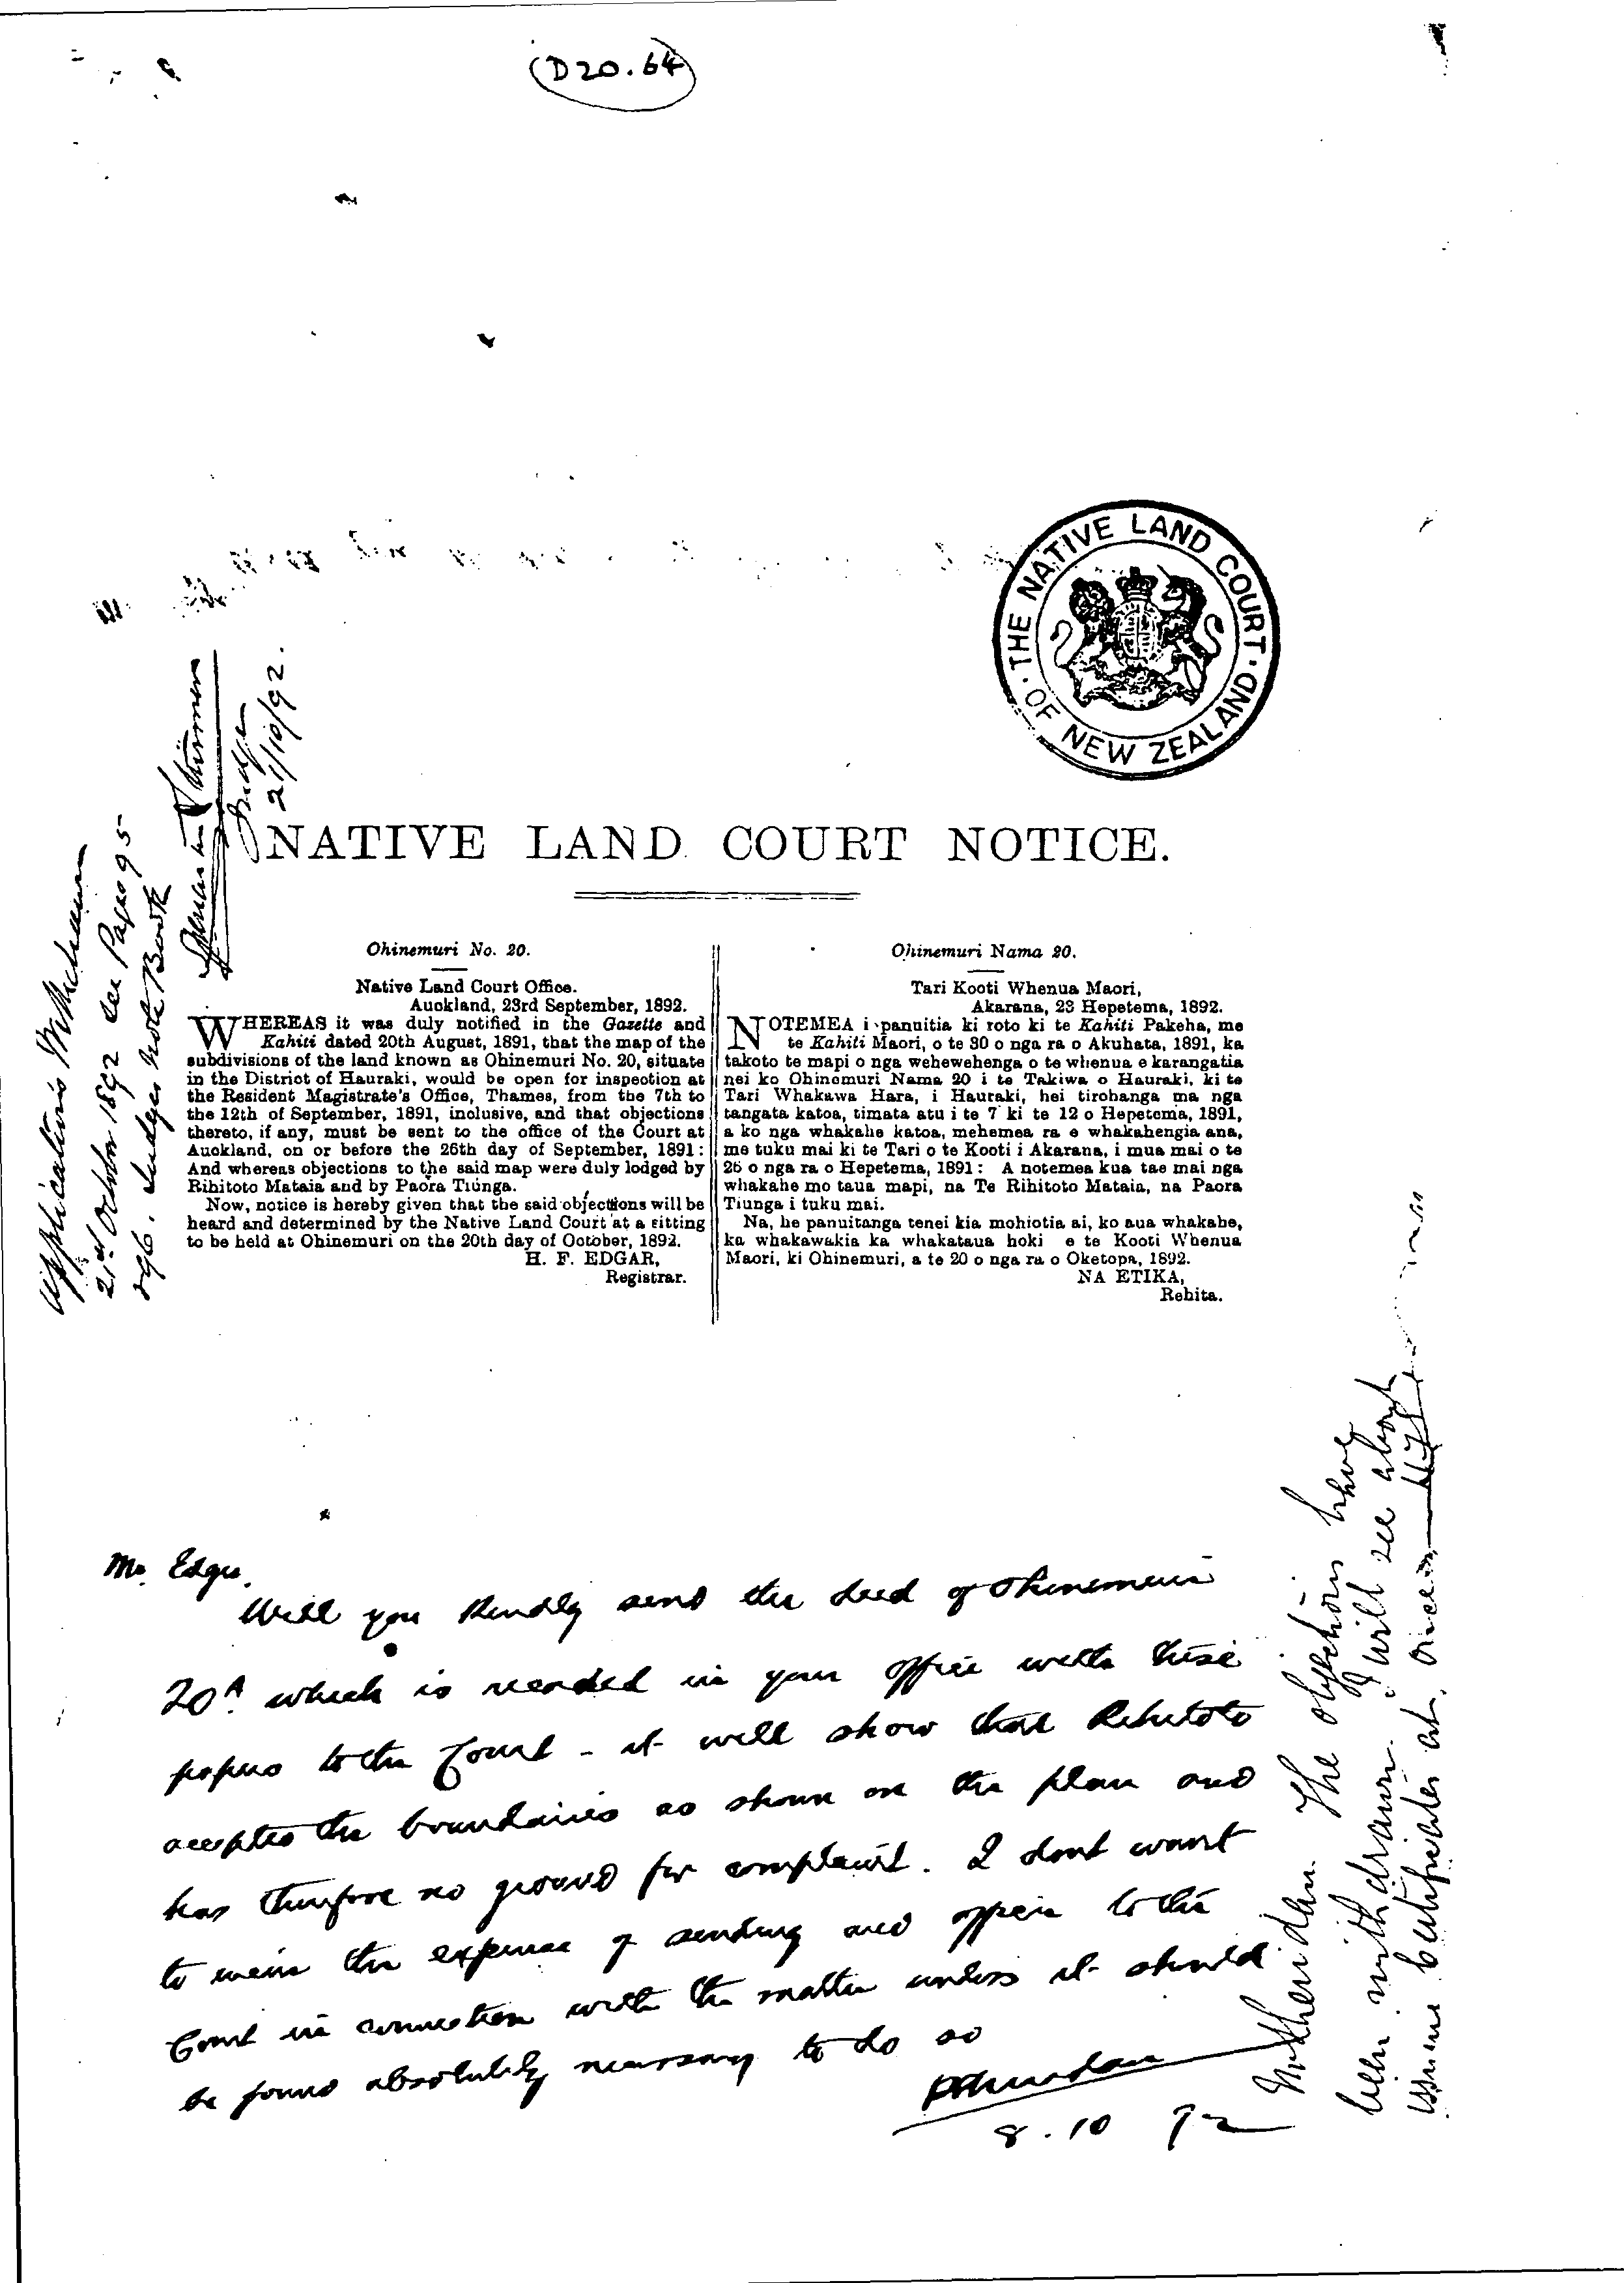 D20.64
THE NATIVE LAND COURT
OF NEW ZEALAND
NATIVE LAND COURT NOTICE.
Ohinemuri No. 20.
Native Land Court Office.
Auckland, 23rd September, 1892.
WHEREAS it was duly notified in the Gazette and
Kahiti dated 20th August, 1891, that the map of the
subdivisions of the land known as Ohinemuri No. 20, situate
in the District of Hauraki, would be open for inspection at
the Resident Magistrate's Office, Thames, from the 7th to
the 12th of September, 1891, inclusive, and that objections
thereto, if any, must be sent to the office of the Court at
Auckland, on or before the 26th day of September, 1891:
And whereas objections to the said map were duly lodged by
Rihitoto Mataia and by Paora Tiunga.
Now, notice is hereby given that the said objections will be
heard and determined by the Native Land Court at a sitting
to be held at Ohinemuri on the 20th day of October, 1892.
H. F. EDGAR,
Registrar.
Ohinemuri Nama 20.
Tari Kooti Whenua Maori,
Akarana, 23 Hepetema, 1892.
NOTEMEA i panuitia ki roto ki te Kahiti Pakeha, me
te Kahiti Maori, o te 30 o nga ra o Akuhata, 1891, ka
takoto te mapi o nga wehewehenga o te whenua e karangatia
nei ko Ohinemuri Nama 20 i te Takiwa o Hauraki, ki te
Tari Whakawa Hara, i Hauraki, hei tirohanga ma nga
tangata katoa, timata atu i te 7 ki te 12 o Hepetema, 1891,
a ko nga whakahe katoa, mehemea ra e whakahengia ana,
me tuku mai ki te Tari o te Kooti i Akarana, i mua mai o te
26 o nga ra o Hepetema, 1891: A notemea kua tae mai nga
whakahe mo taua mapi, na Te Rihitoto Mataia, na Paora
Tiunga i tuku mai.
Na, he panuitanga tenei kia mohiotia ai, ko aua whakahe,
ka whakawakia ka whakataua hoki e te Kooti Whenua
Maori, ki Ohinemuri, a te 20 o nga ra o Oketopa, 1892.
NA ETIKA,
Rehita.
Applications Withdrawn
21st October 1892 See Pages 95
& 96. Judges Note Book
Judge
21/10/92.
Mr. Edgar.
Will you kindly send the deed of Ohinemuri
20A which is recorded in your office with these
papers to the Court - it will show that Rihitoto
accepted the boundaries as shown on the plan and
has therefore no ground for complaint. I dont want
to incur the expense of sending and officer to the
Court in connection with the matter unless it should
be found absolutely necessary to do so
PSheridan
8.10 92
Mr Sheridan. The objections have
been withdrawn. I will see about
issuing Certificates at once